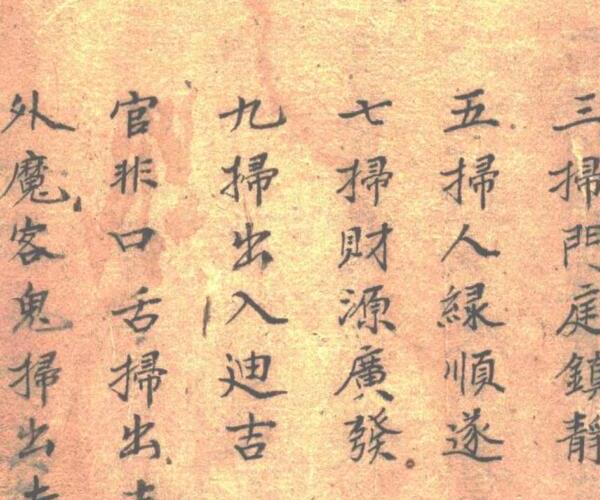 三掃門庭鎮靜
五掃人緣順遂
七掃財源廣發
九掃出入迪吉
官非口舌掃出去
外魔客鬼掃出去